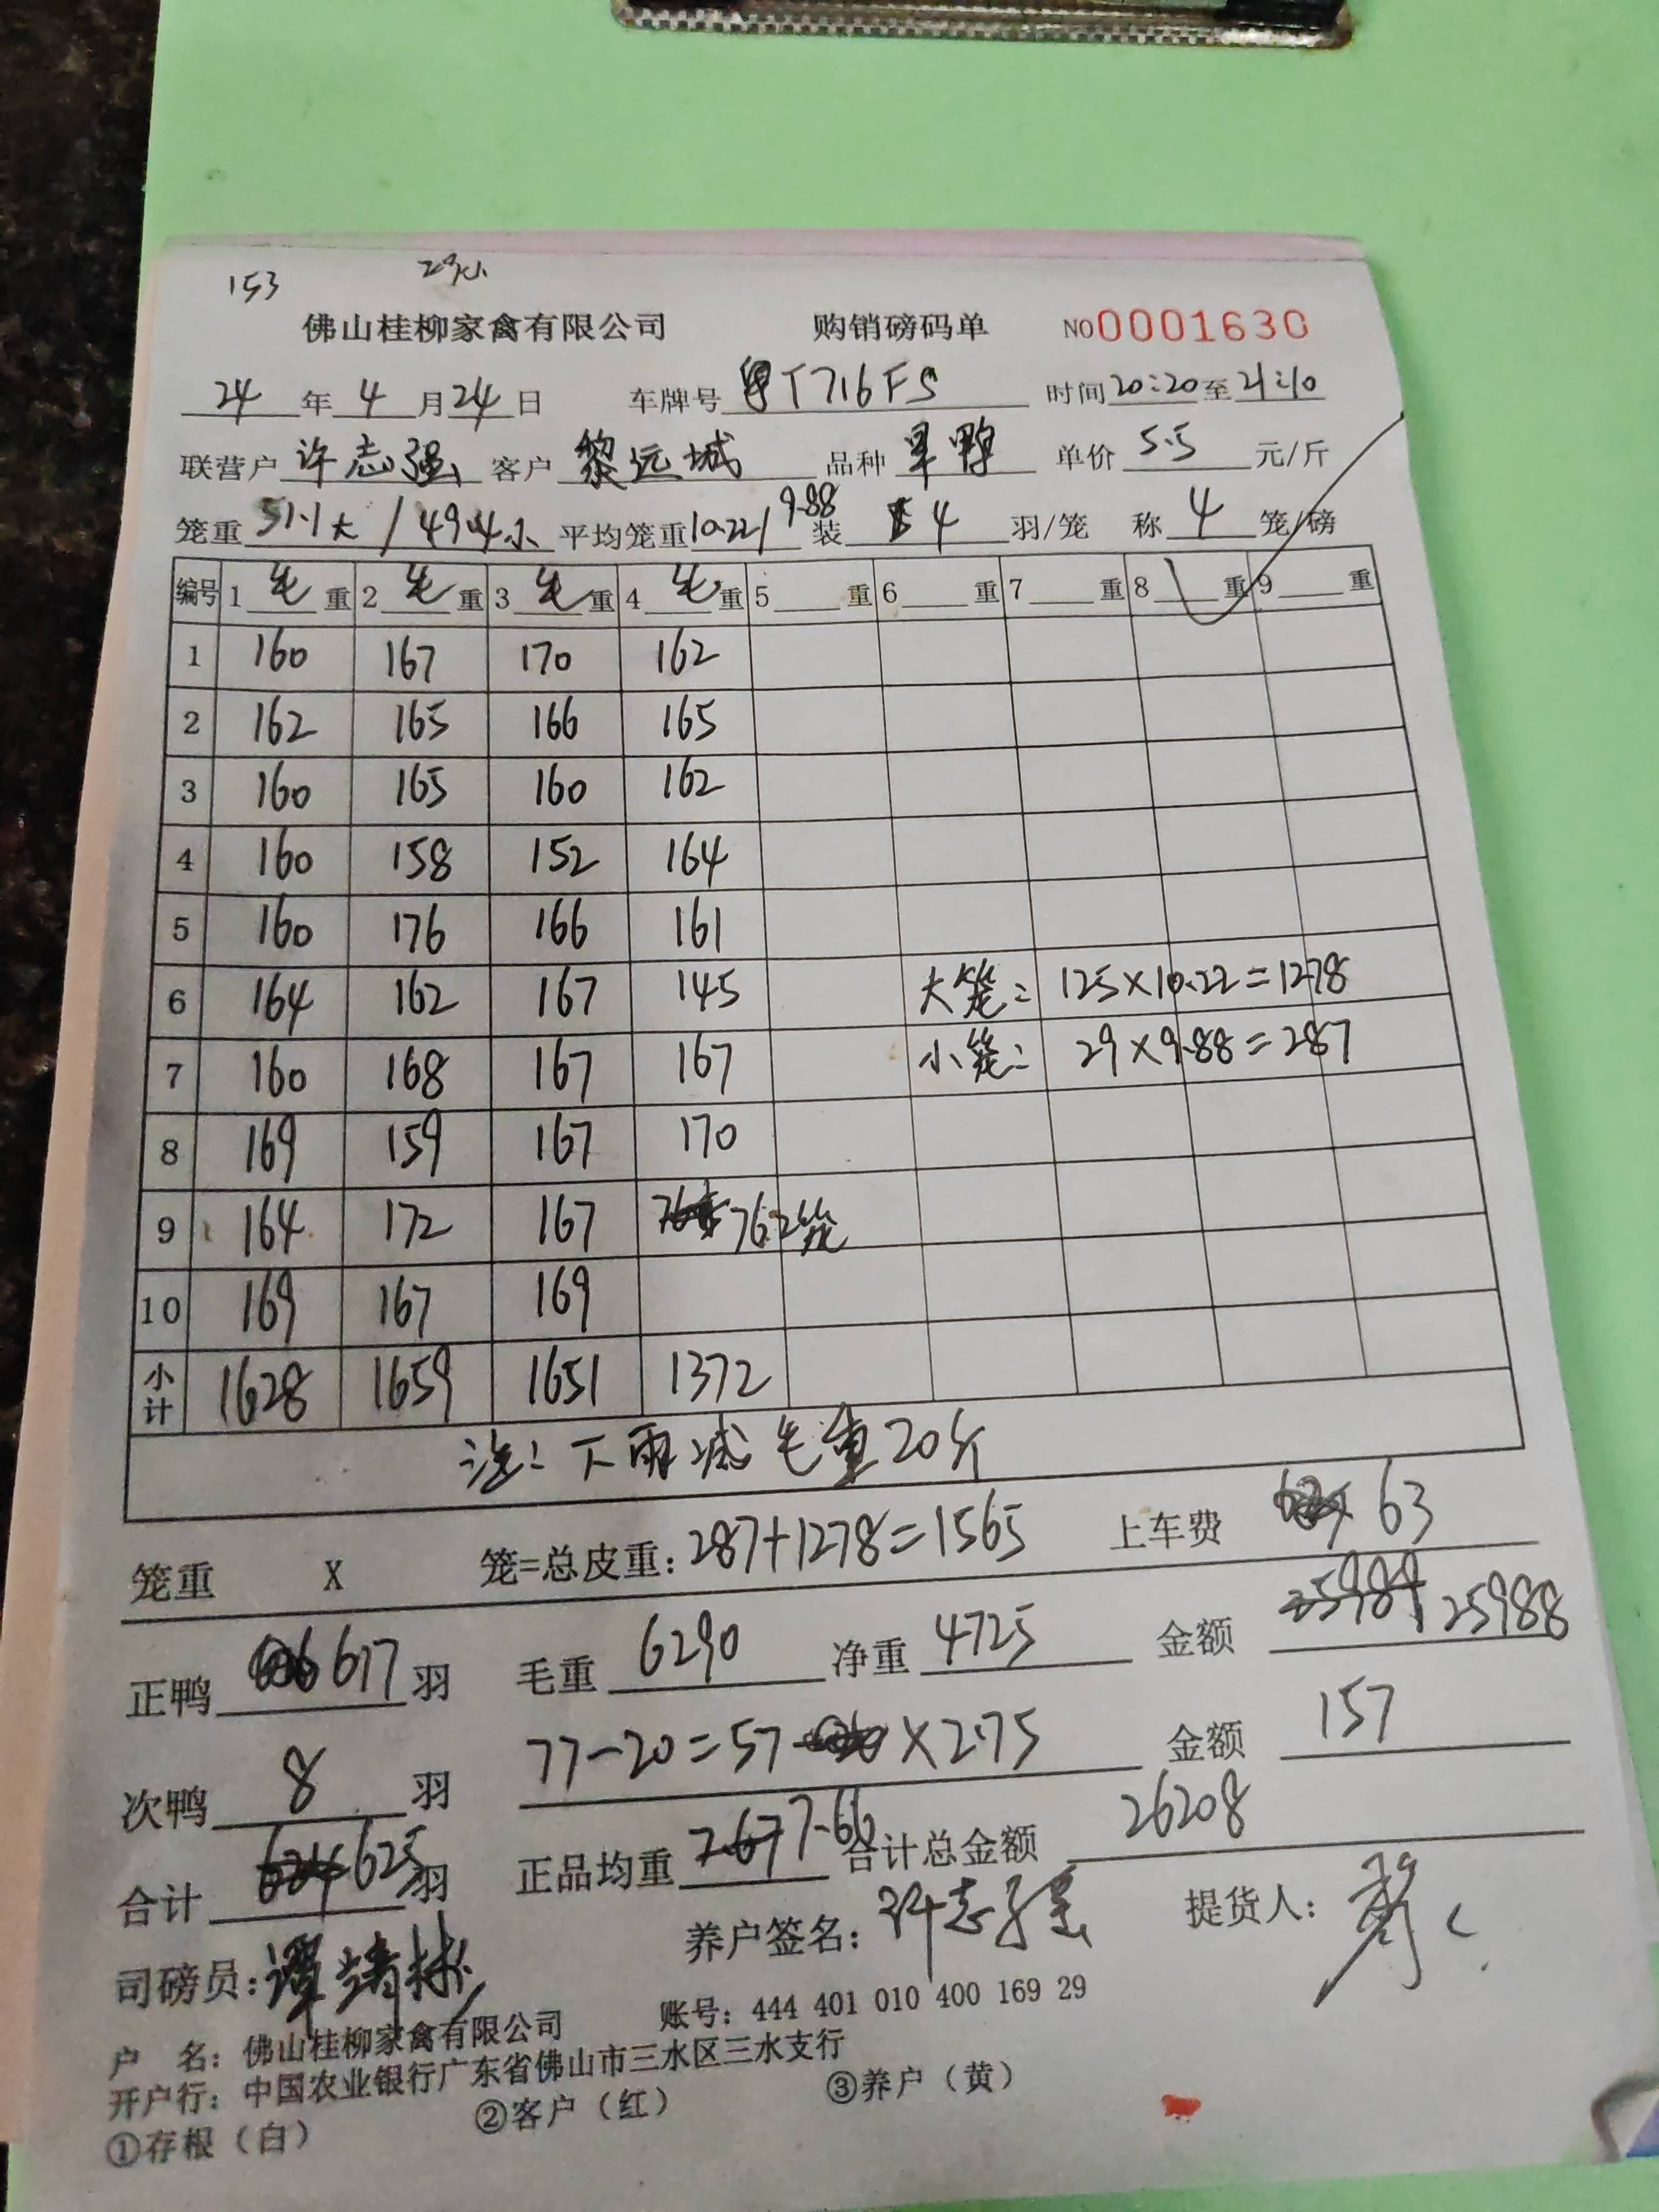 153 29小
佛山桂柳家禽有限公司 购销磅码单 NO0001630
24 年 4 月 24 日 车牌号 粤T716FS 时间 20:20 至 21:10
联营户 许志强 客户 黎远城 品种 旱鸭 单价 5.5 元/斤
笼重 51.1大 / 49.4小 平均笼重 10.22/9.88 装 4 羽/笼 称 4 笼/磅
编号 1 毛 重 2 毛 重 3 毛 重 4 毛 重 5 重 6 重 7 重 8 重 9 重
1 160 167 170 162
2 162 165 166 165
3 160 165 160 162
4 160 158 152 164
5 160 176 166 161
6 164 162 167 145 大笼: 125×10.22=1278
7 160 168 167 167 小笼: 29×9.88=287
8 169 159 167 170
9 164 172 167 76.2笼
10 169 167 169
小计 1628 1659 1651 1372
注: 下雨减毛重20斤
笼重 X 笼=总皮重: 287+1278=1565 上车费 63
正鸭 617 羽 毛重 6290 净重 4725 金额 25988
次鸭 8 羽 77-20=57 ×2.75 金额 157
合计 625 羽 正品均重 7.66 合计总金额 26208
司磅员: 谭 养户签名: 许志强 提货人:
户 名: 佛山桂柳家禽有限公司 账号: 444 401 010 400 169 29
开户行: 中国农业银行广东省佛山市三水区三水支行
①存根（白） ②客户（红） ③养户（黄）